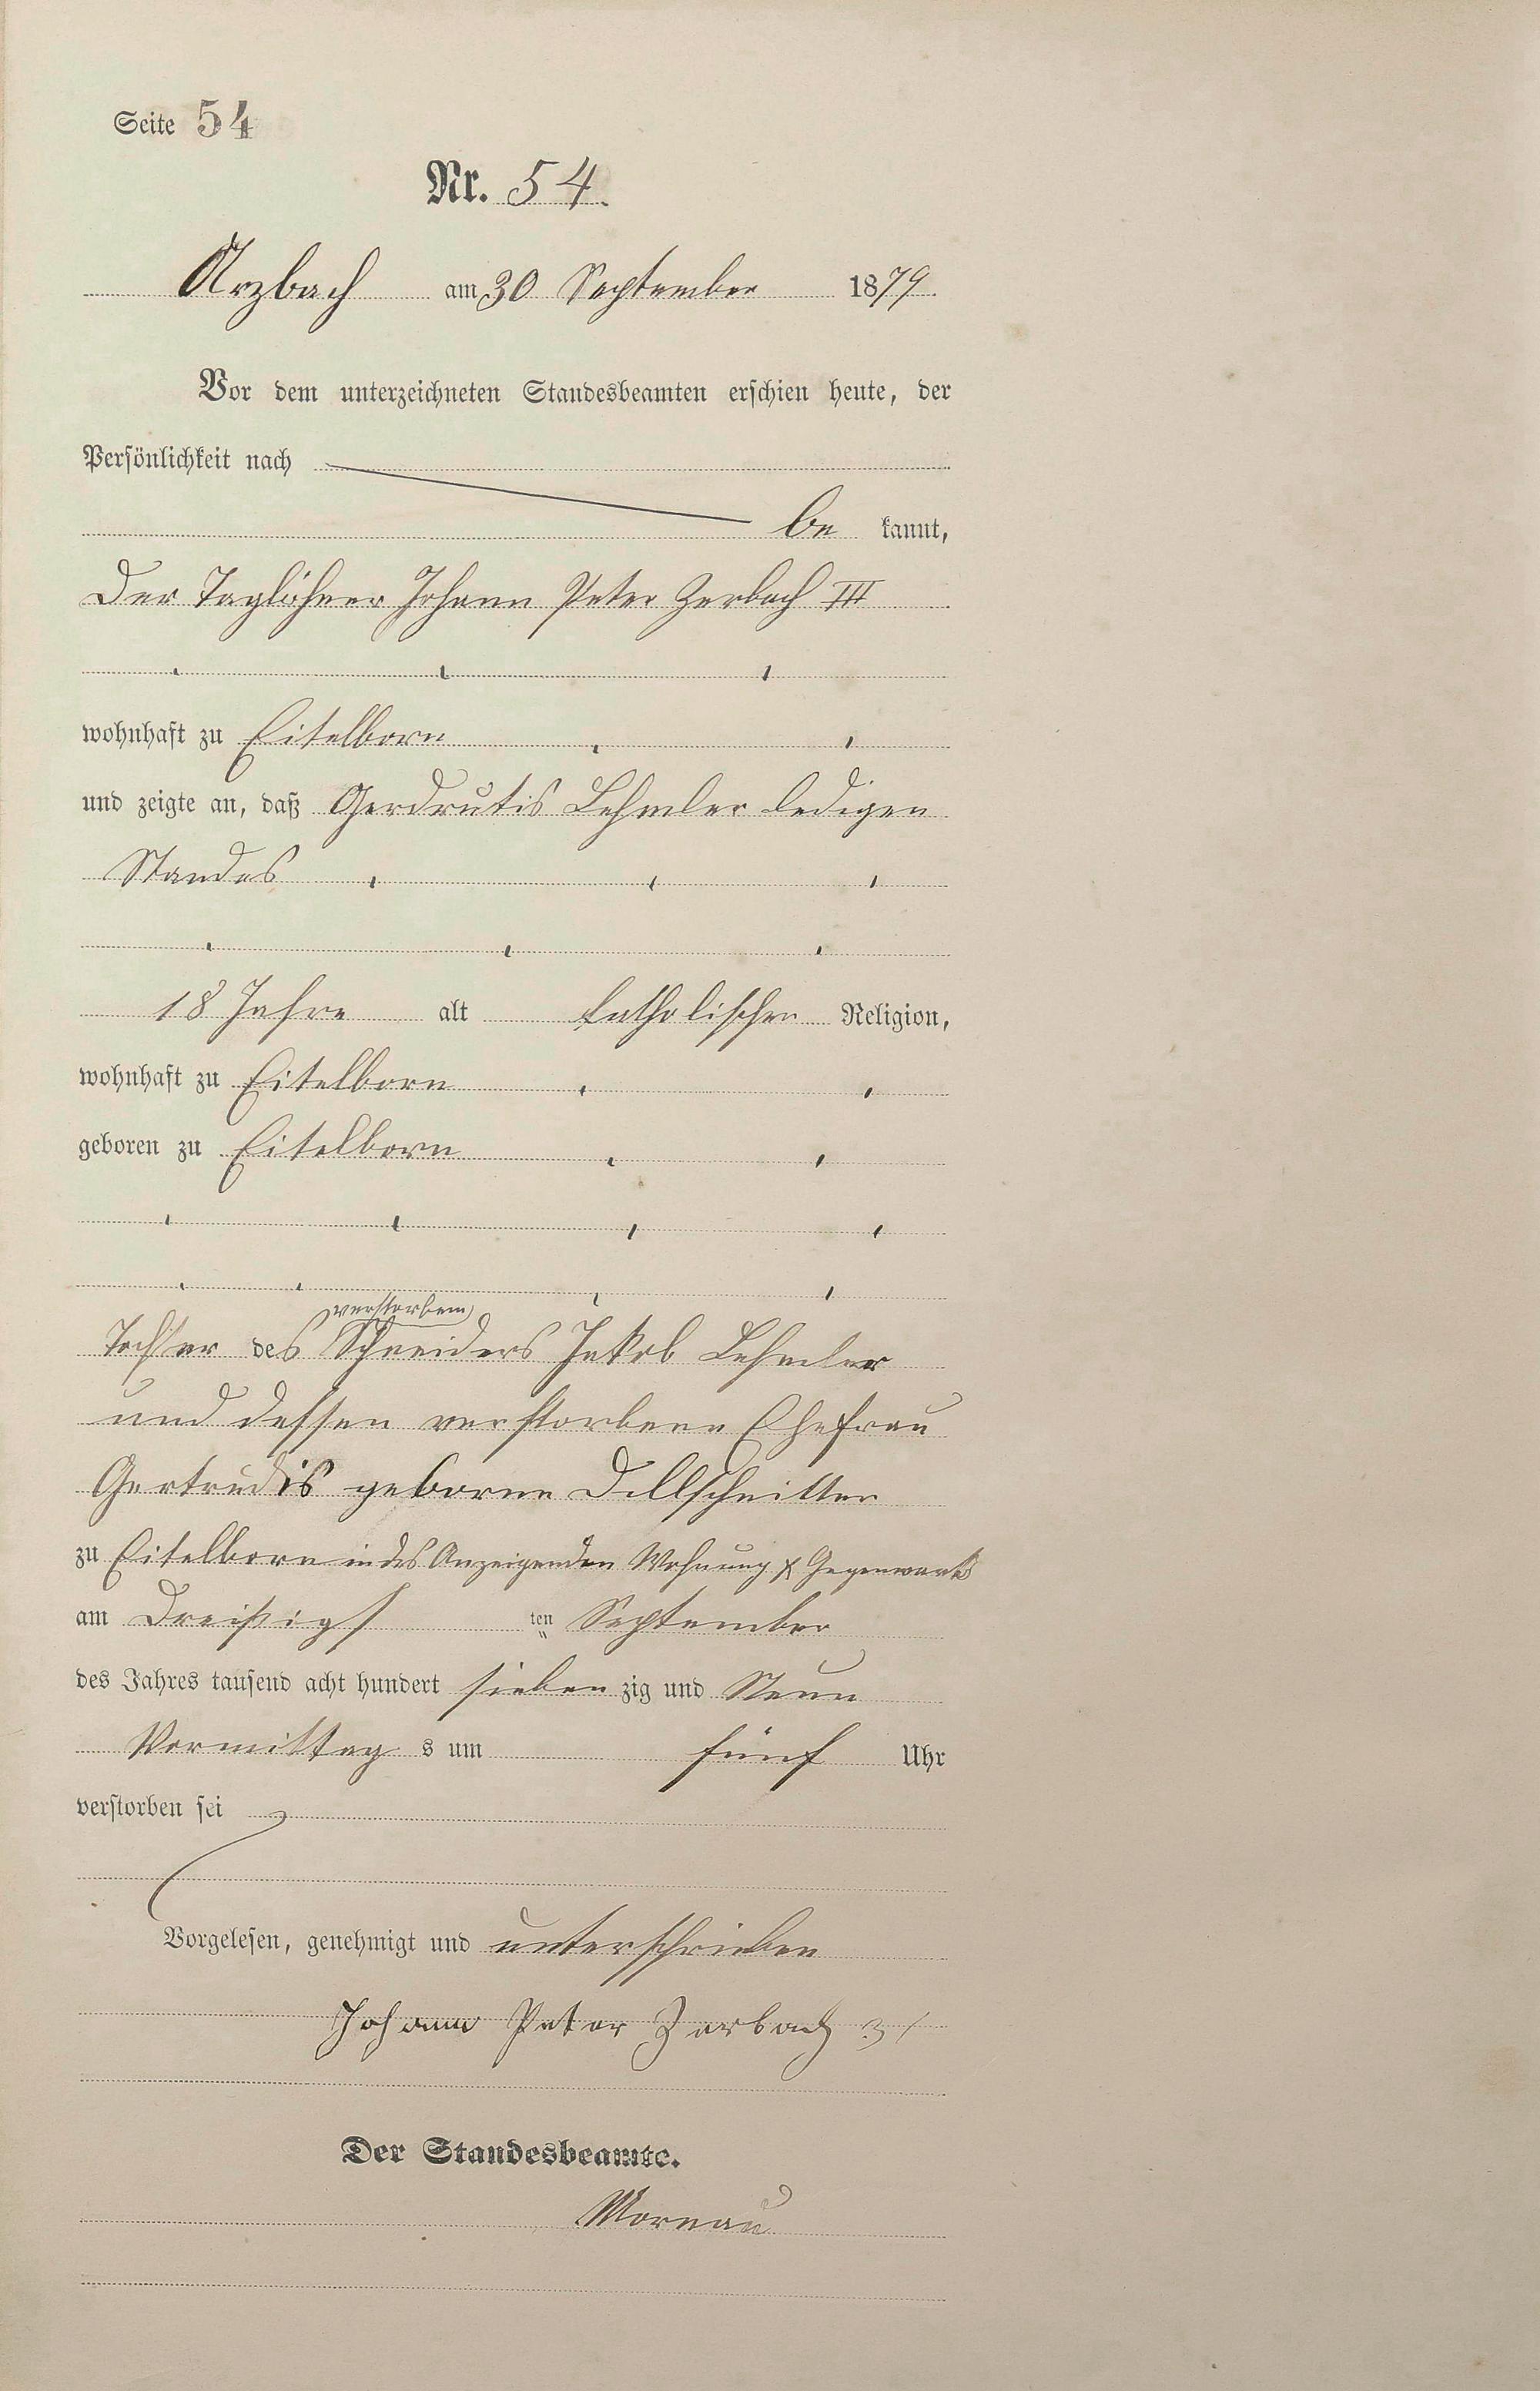 Seite 54
Nr. 54.
Arzbach am 30 September 1879.
Vor dem unterzeichneten Standesbeamten erschien heute, der
Persönlichkeit nach
be kannt,
Der Taglöhner Johann Peter Zerbach III
wohnhaft zu Eitelborn
und zeigte an, daß Gerdrutis Lehmler ledigen
Standes
18 Jahre alt katholischer Religion,
wohnhaft zu Eitelborn
geboren zu Eitelborn
verstorbem
Tochter des Schneiders Jakob Lehmler
und dessen verstorbene Ehefrau
Gertrudis geborne Dellschnitter
zu Eitelborn in des Anzeigenden Wohnung & Gegenwart
am Dreißigs ten September
des Jahres tausend acht hundert sieben zig und Neun
Vormittag s um fünf Uhr
verstorben sei
Vorgelesen, genehmigt und unterschrieben
Johann Peter Zerbach 3/
Der Standesbeamte.
Mornau